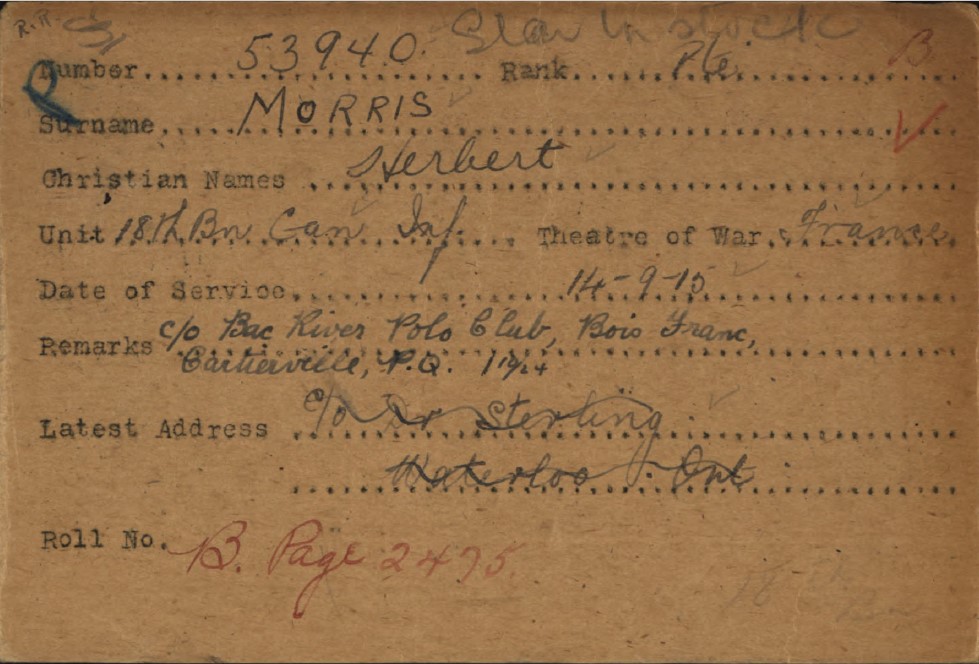 R.R. Star In stock
Number 53940 Rank Pte. B
Surname MORRIS
Christian Names Herbert
Unit 18th Bn Can Inf. Theatre of War France
Date of Service 14-9-15
Remarks c/o Bac River Polo Club, Bois Franc,
Cartierville, P.Q.
Latest Address c/o Dr Sterling
Waterloo Ont
Roll No. B. Page 2475
18th
Bn